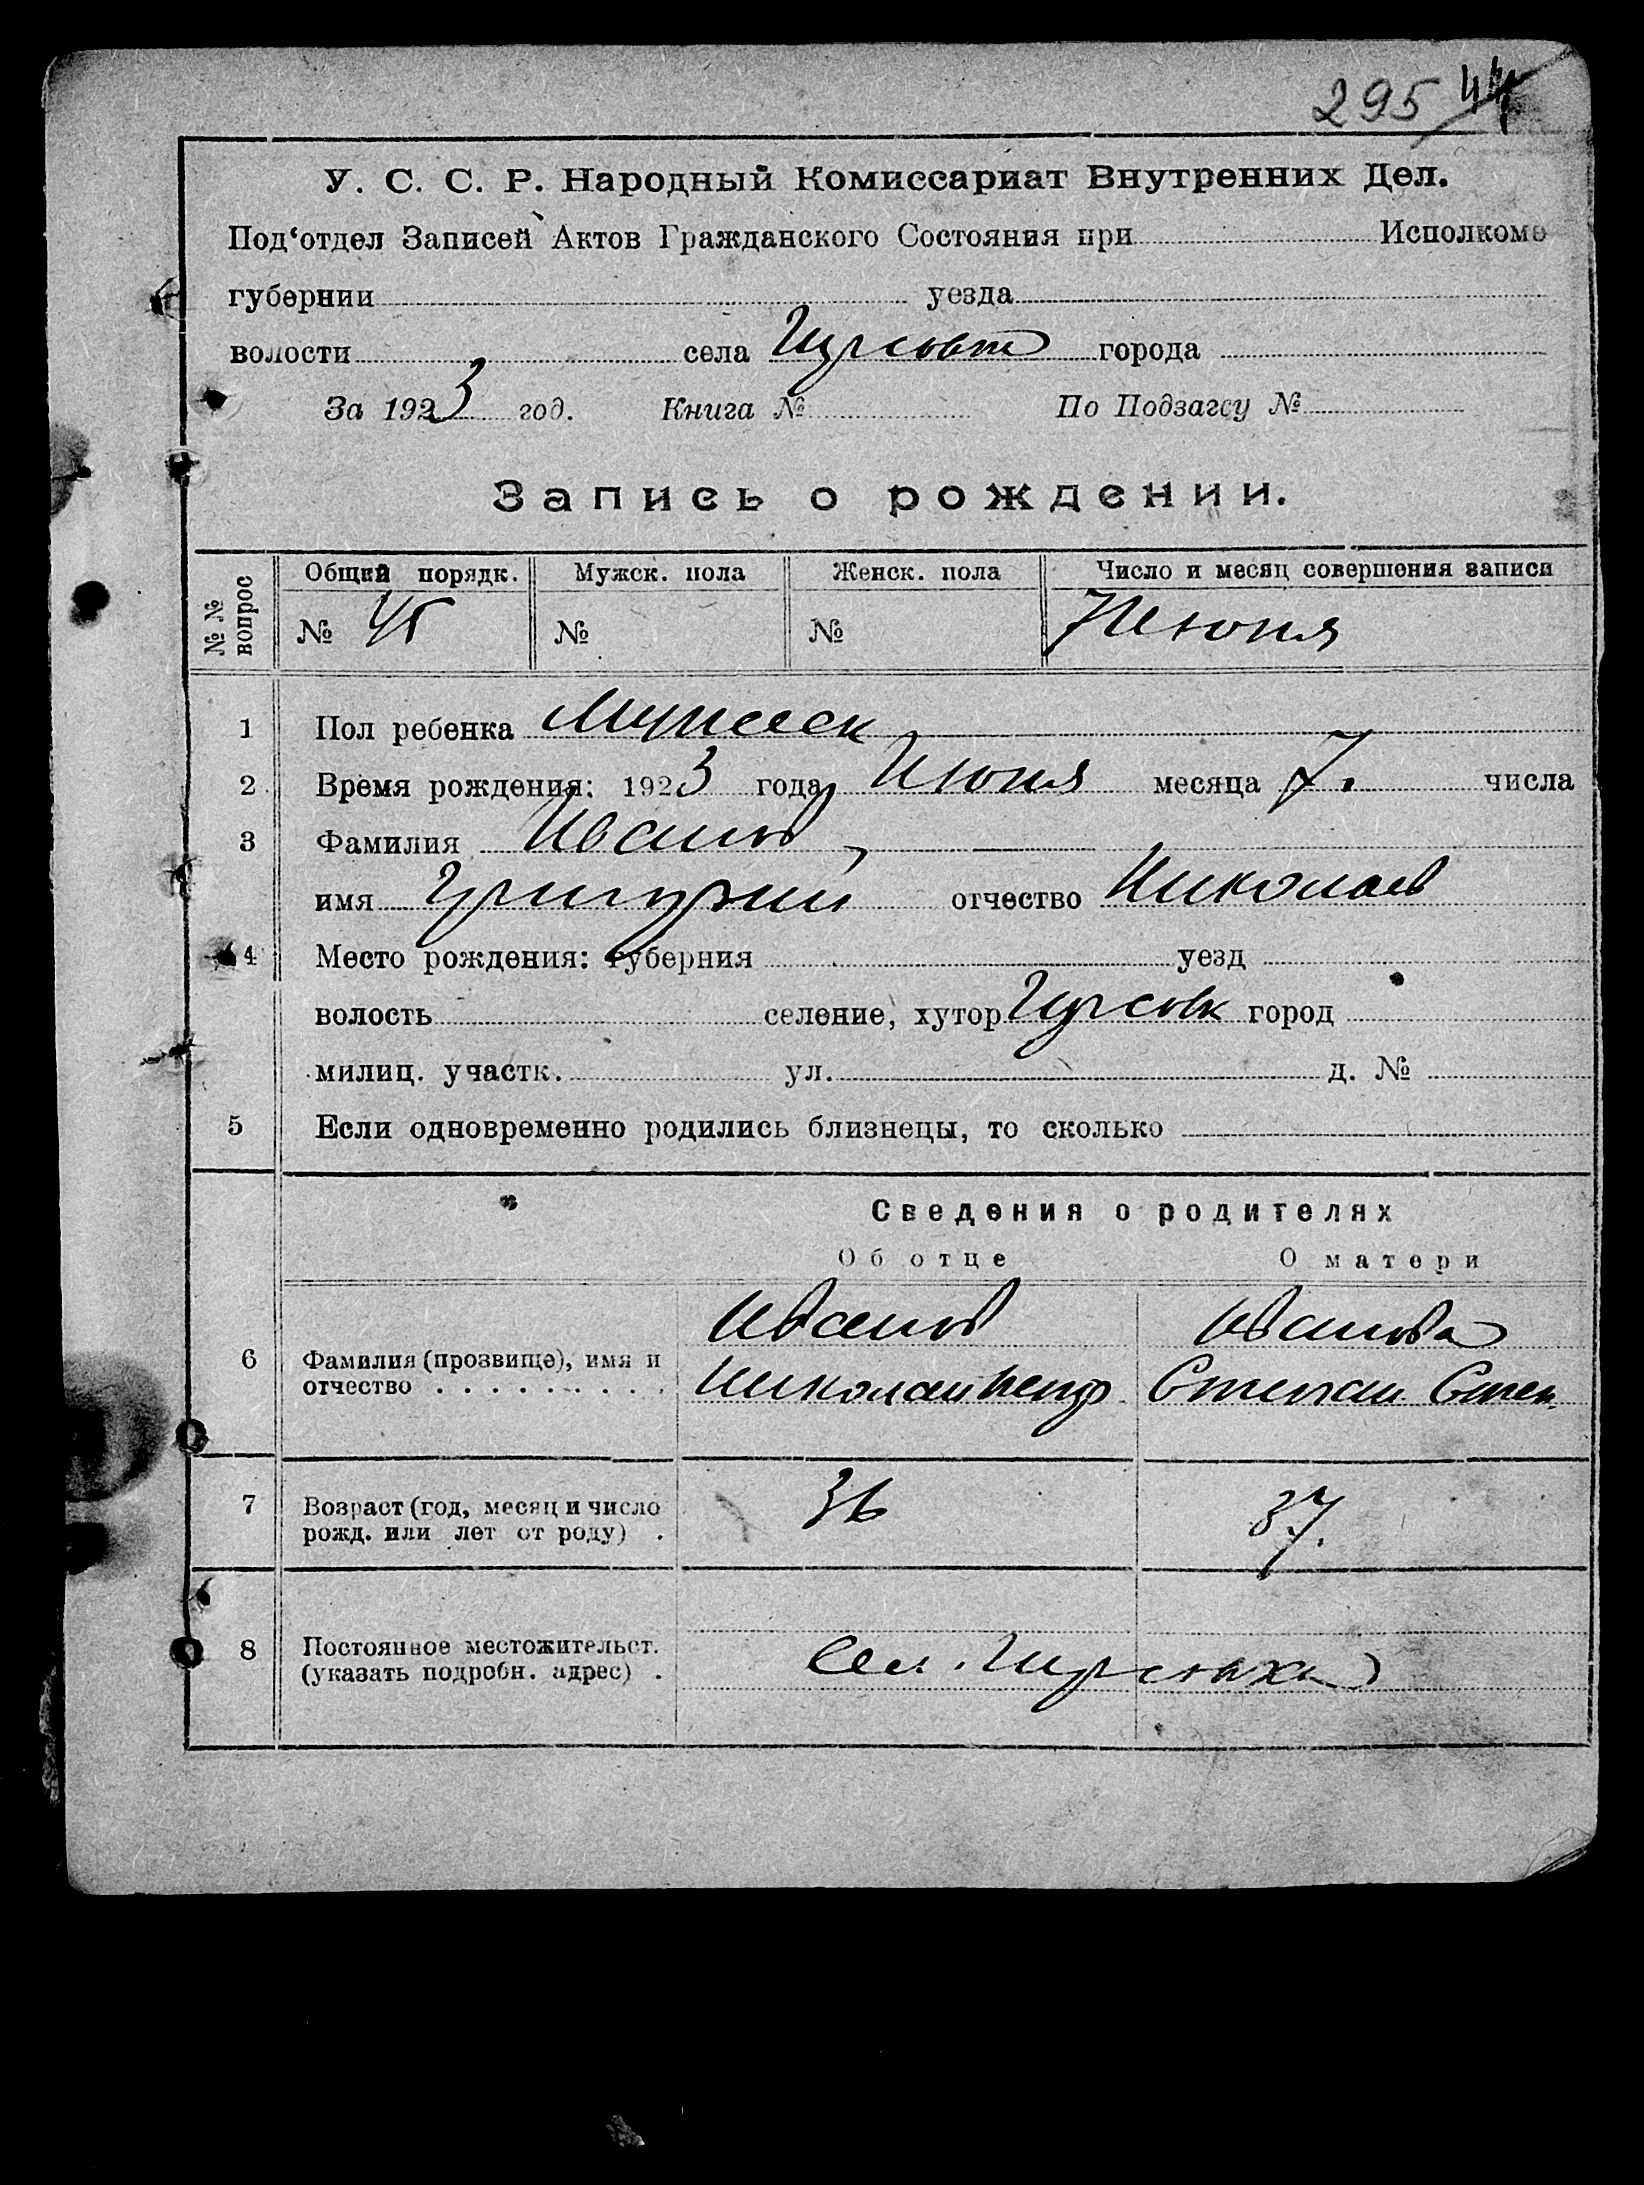 295 44
У. С. С. Р. Народный Комиссариат Внутренних Дел.
Под‘отдел Записей Актов Гражданского Состояния при Исполкоме
губернии уезда
волости села города
За 1923 год. Книга № По Подзагсу №
Запись о рождении.
№ № вопрос Общий порядк. Мужск. пола Женск. пола Число и месяц совершения записи
№ 45 № № 7 Июня
1 Пол ребенка Мужеск
2 Время рождения: 1923 года Июня месяца 7. числа
3 Фамилия Иванов
имя Григорий отчество Николаев
4 Место рождения: губерния уезд
волость селение, хутор город
милиц. участк. ул. д. №
5 Если одновременно родились близнецы, то сколько
Сведения о родителях
Об отце О матери
Иванов Иванова
6 Фамилия (прозвище), имя и
отчество . . . . . . . . . . Николай Степ.
7 Возраст (год, месяц и число
рожд. или лет от роду) . 36 37.
8 Постоянное местожительст.
(указать подробн. адрес) . Сел.